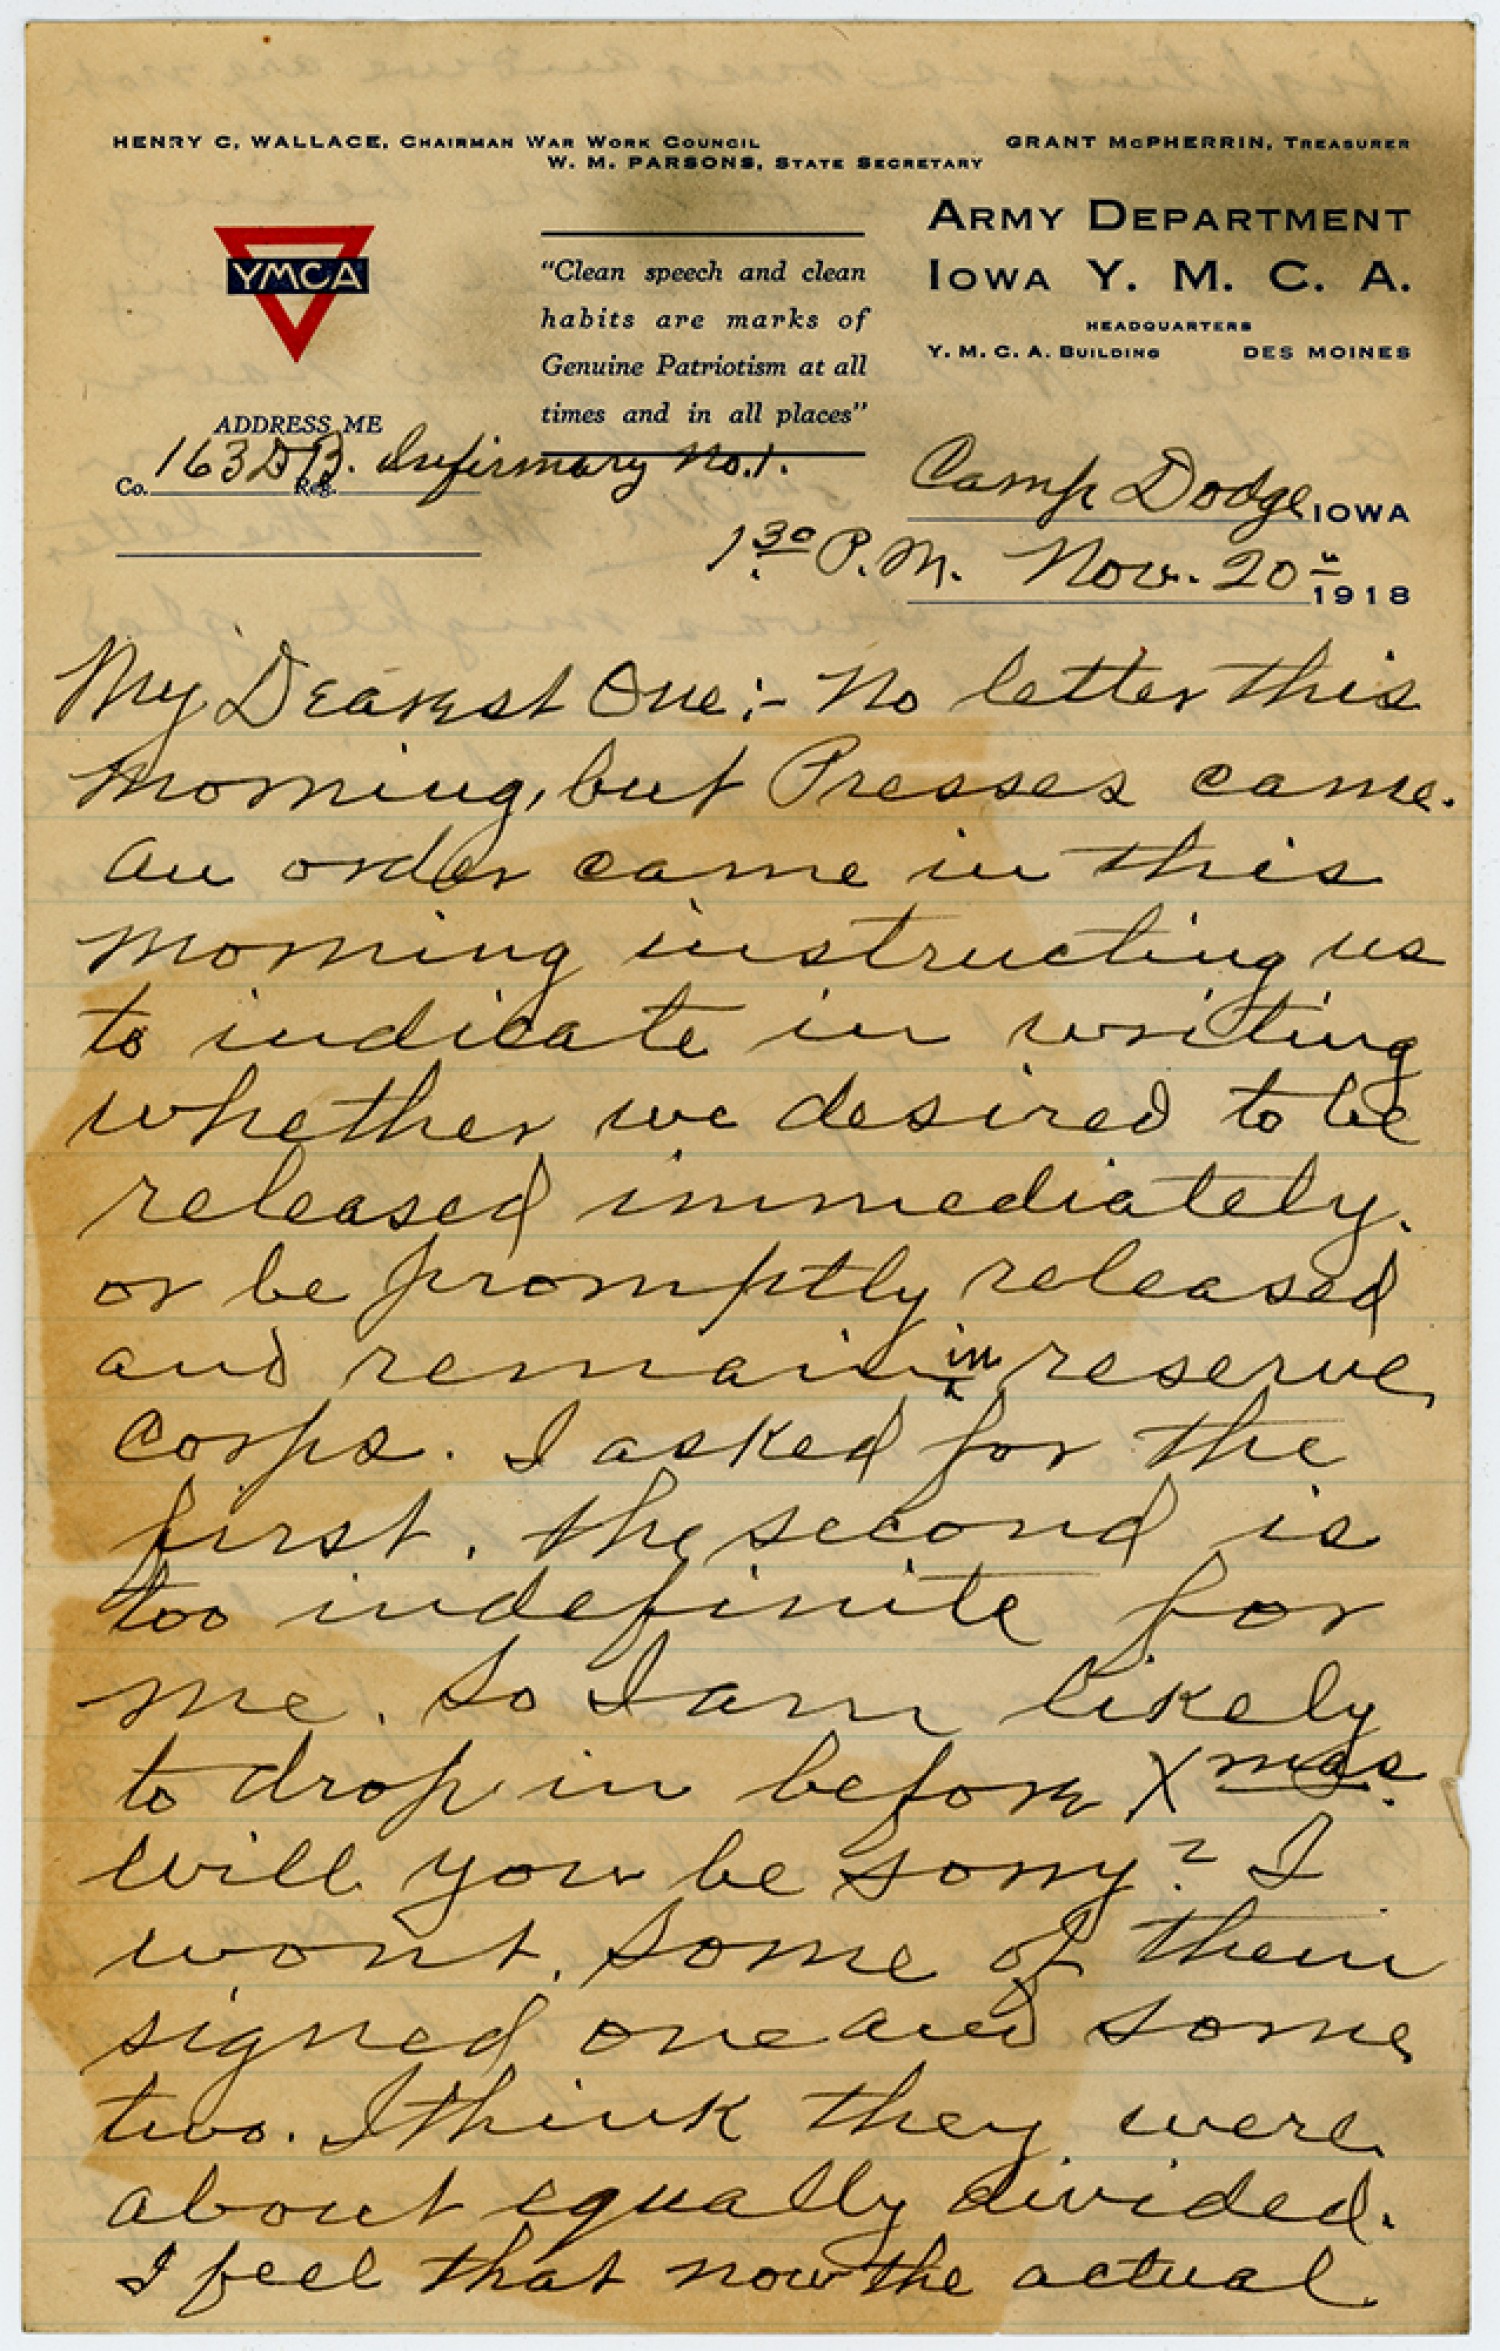 HENRY C. WALLACE, CHAIRMAN WAR WORK COUNCIL
W. M. PARSONS, STATE SECRETARY
GRANT McPHERRIN, TREASURER
YMCA
"Clean speech and clean
habits are marks of
Genuine Patriotism at all
times and in all places"
ARMY DEPARTMENT
IOWA Y. M. C. A.
HEADQUARTERS
Y. M. C. A. BUILDING DES MOINES
ADDRESS ME
Co. 163 D.B. Reg. Infirmary No. 1.
Camp Dodge IOWA
1 30 P.M. Nov. 20 th 1918
My Dearest One:- No letter this
morning, but Presses came.
An order came in this
morning instructing us
to indicate in writing
whether we desired to be
released immediately.
or be promptly released
and remain in reserve
corps. I asked for the
first. the second is
too indefinite for
me. So I am likely
to drop in before Xmas.
Will you be sorry? I
wont. Some of them
signed one and some
two. I think they were
about equally divided.
I feel that now the actual